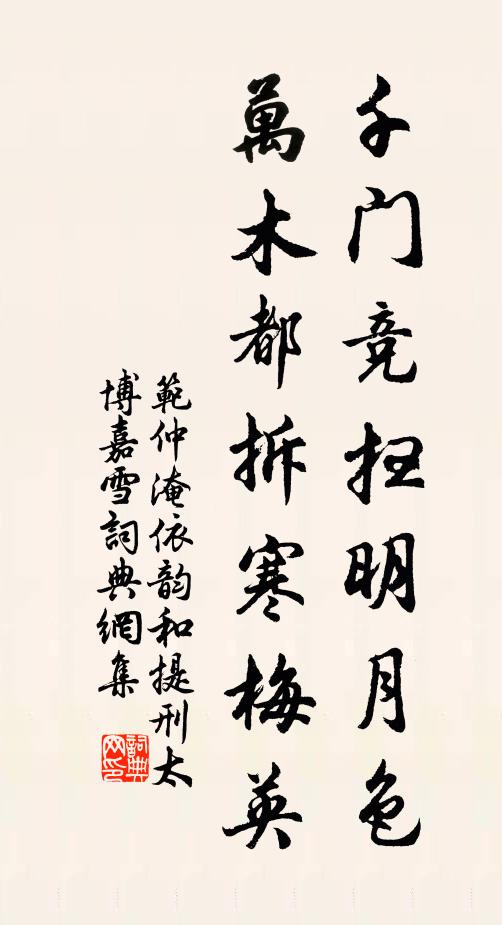 千门竞扫明月色
萬木都拆寒梅英
範仲淹依韵和提刑太
博嘉雪詞典網集
詞典
网印